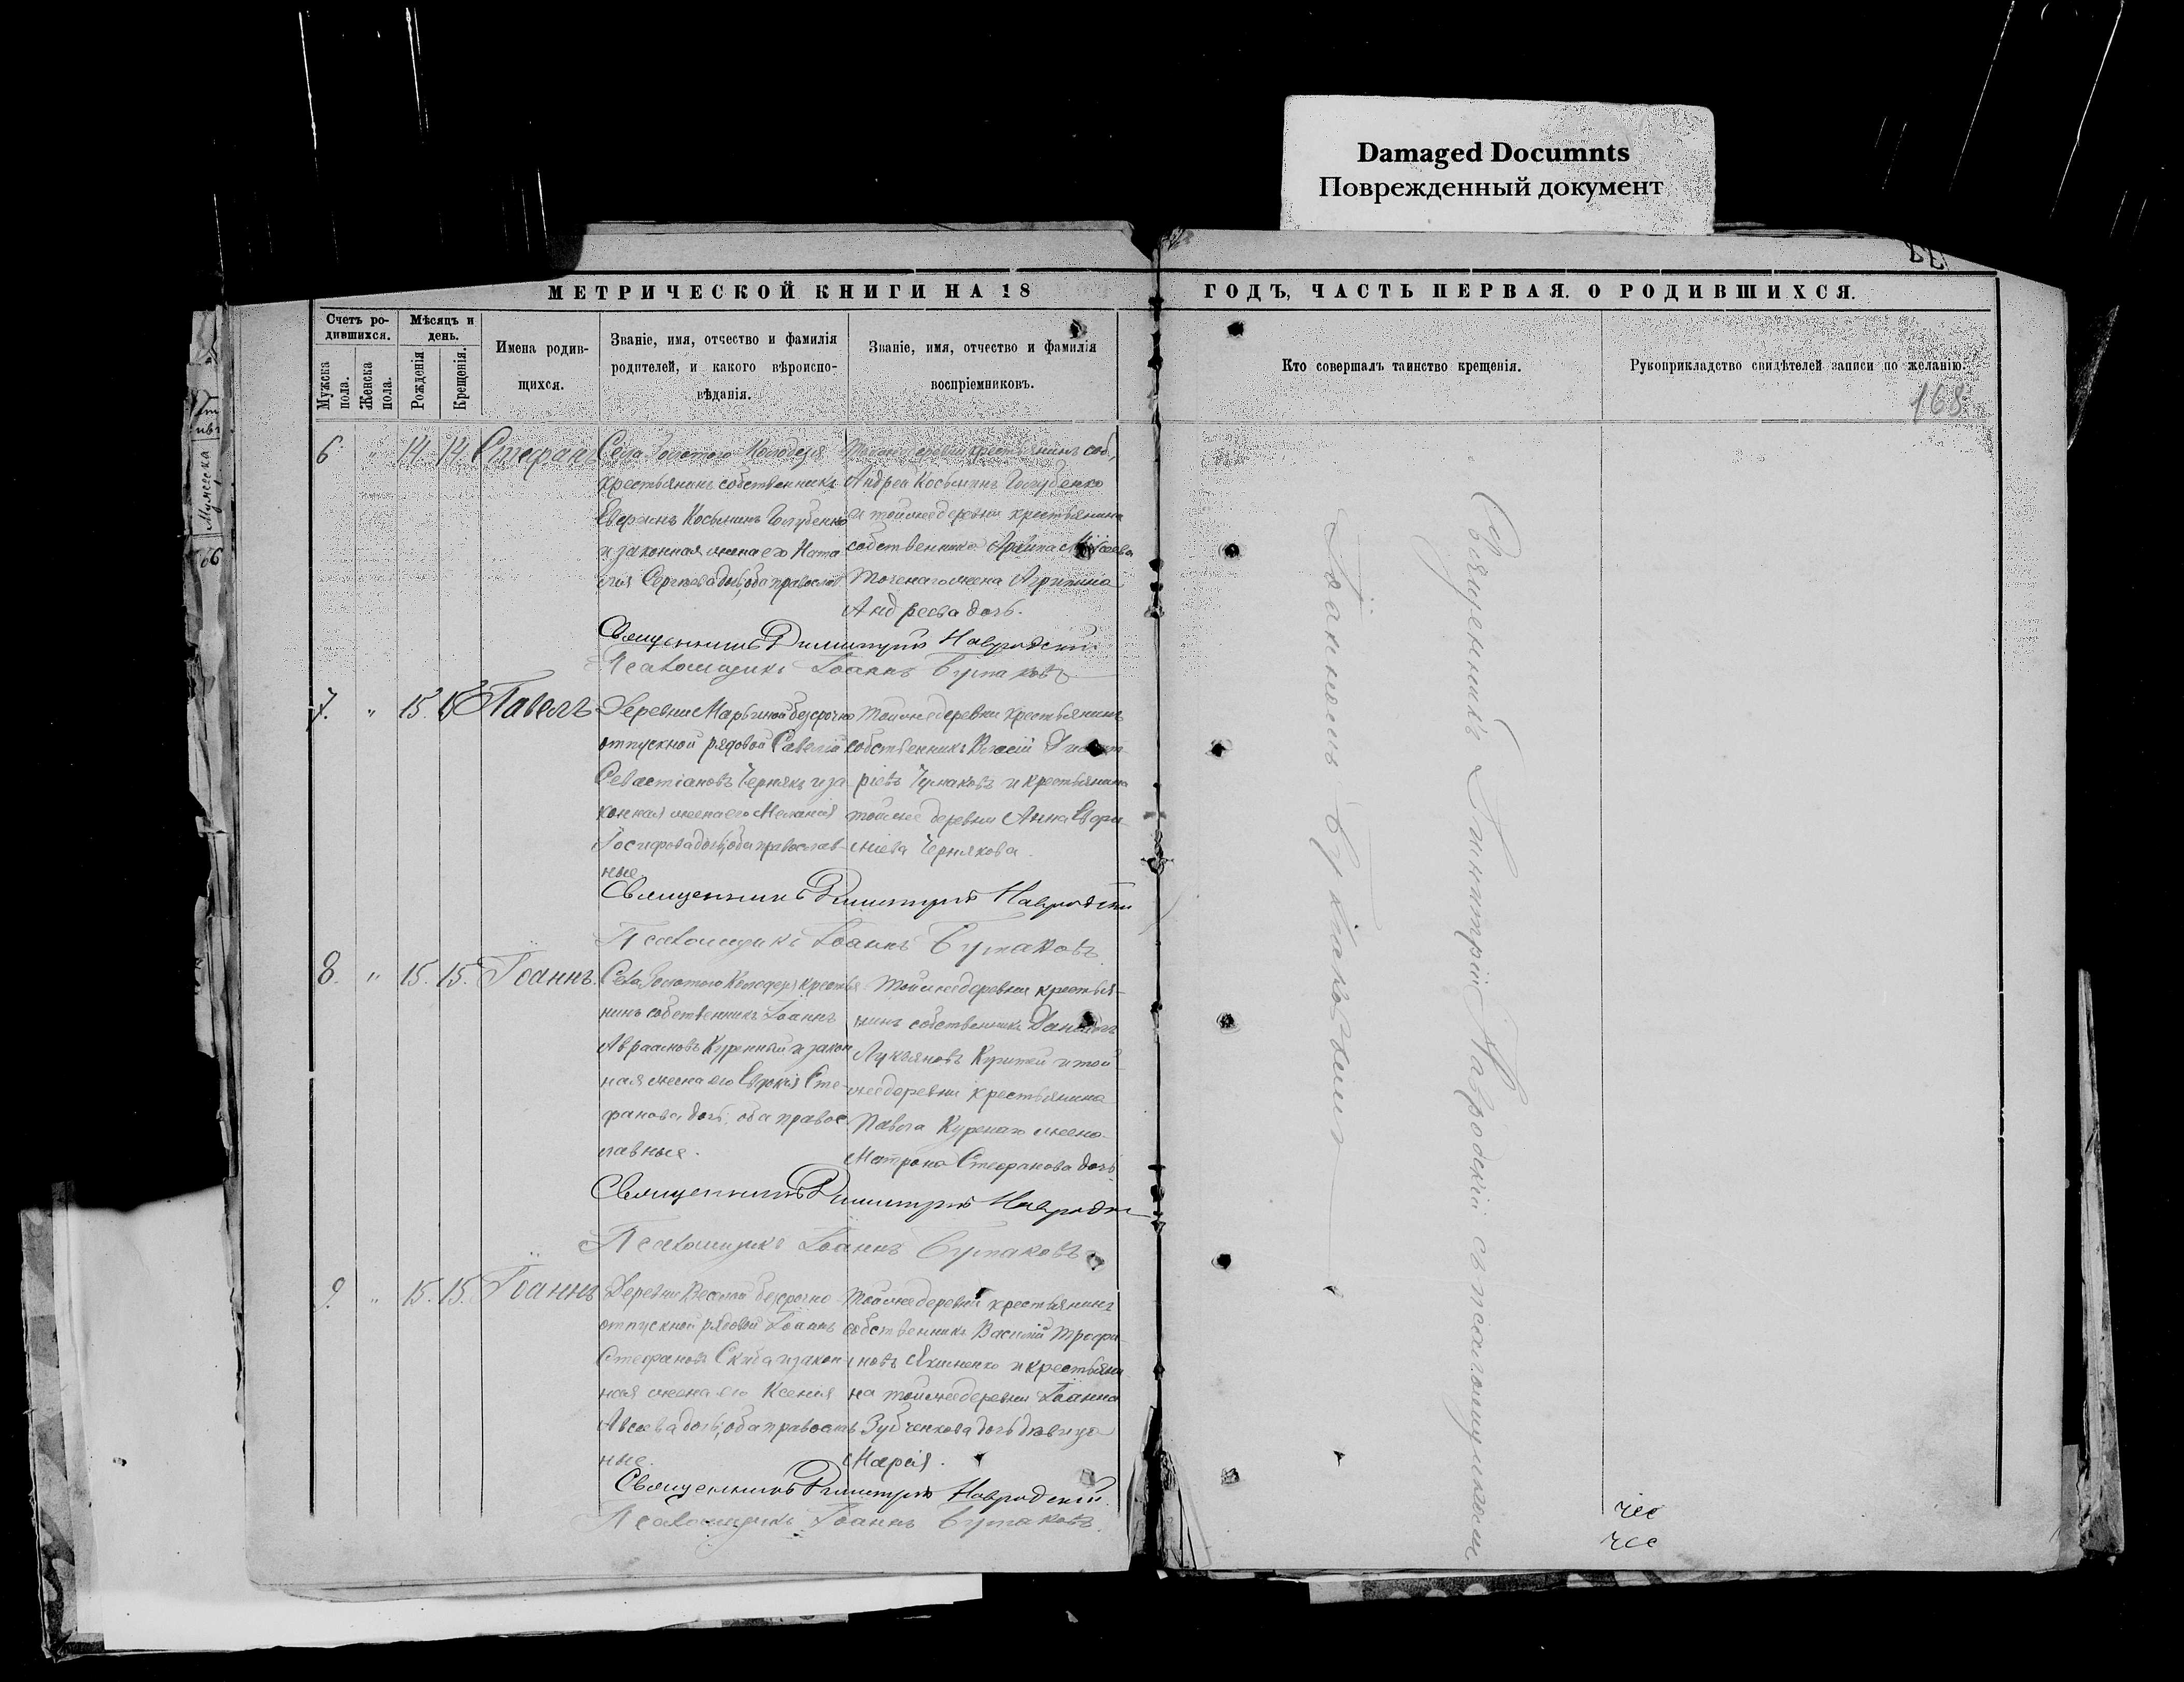 Damaged Documnts
Поврежденный документ
МЕТРИЧЕСКОЙ КНИГИ НА 18
ГОДЪ, ЧАСТЬ ПЕРВАЯ. О РОДИВШИХСЯ.
Счетъ ро-
дившихся.
Мужска
пола.
Женска
пола.
Мѣсяцъ и
день.
Рожденія
Крещенія.
Имена родив-
щихся.
Званіе, имя, отчество и фамилія
родителей, и какого вѣроиспо-
вѣданія.
Званіе, имя, отчество и фамилія
воспріемниковъ.
Кто совершалъ таинство крещенія.
Рукоприкладство свидѣтелей записи по желанію.
168
6 " 14. 14. Стефанъ
Села Золотого Колодезя
крестьянинъ собственникъ
Косьминъ Голубенко
и законная жена его Ната
лія Сергѣева дочь, оба православ
крестьянинъ соб.
Андрей Косьминъ Голубенко
и тойже деревни крестьянина
собственника
жена Агрипина
Андреева дочь.
Священникъ Димитрій Навродскій
Псаломщикъ Іоаннъ Бутаковъ
7. " 15. 15 Павелъ
Деревни Марьиной безсрочно
отпускной рядовой Савелій
Севастіановъ Чернякъ и за
конная жена его Меланія
Іосифова дочь, оба православ-
ные.
тойже деревни крестьянинъ
собственникъ Власій
ріевъ Чумаковъ и крестьянина
тойже деревни Анна Евфи
міева Чернякова.
Священникъ Димитрій Навродскій
Псаломщикъ Іоаннъ Бутаковъ.
8. " 15. 15. Іоаннъ.
Села Золотого Колодезя крестья
нинъ собственникъ Іоаннъ
Авраамовъ Куренный и закон
ная жена его Сте-
фанова дочь, оба правос
лавные.
Тойже деревни крестья-
нинъ собственникъ Даніилъ
Лукьяновъ и той
же деревни крестьянина
Павла Куренаго жена
Матрона Стефанова дочь
Священникъ Димитрій Навродск
Псаломщикъ Іоаннъ Бутаковъ.
9. " 15. 15. Іоаннъ
Деревни Веселой безсрочно
отпускной рядовой Іоаннъ
Стефановъ Скиба и закон
ная жена его Ксенія
дочь; оба православ
ные.
Тойже деревни крестьянинъ
собственникъ Василій Трофи
мовъ Яхименко и крестьяни
на тойже деревни Іоанна
Зубченкова дочь дѣвица
Марія.
Священникъ Димитрій Навродскій.
Псаломщикъ Іоаннъ Бутаковъ.
Священникъ Димитрій Навродскій съ псаломщикомъ
Іоанномъ Бутаковымъ